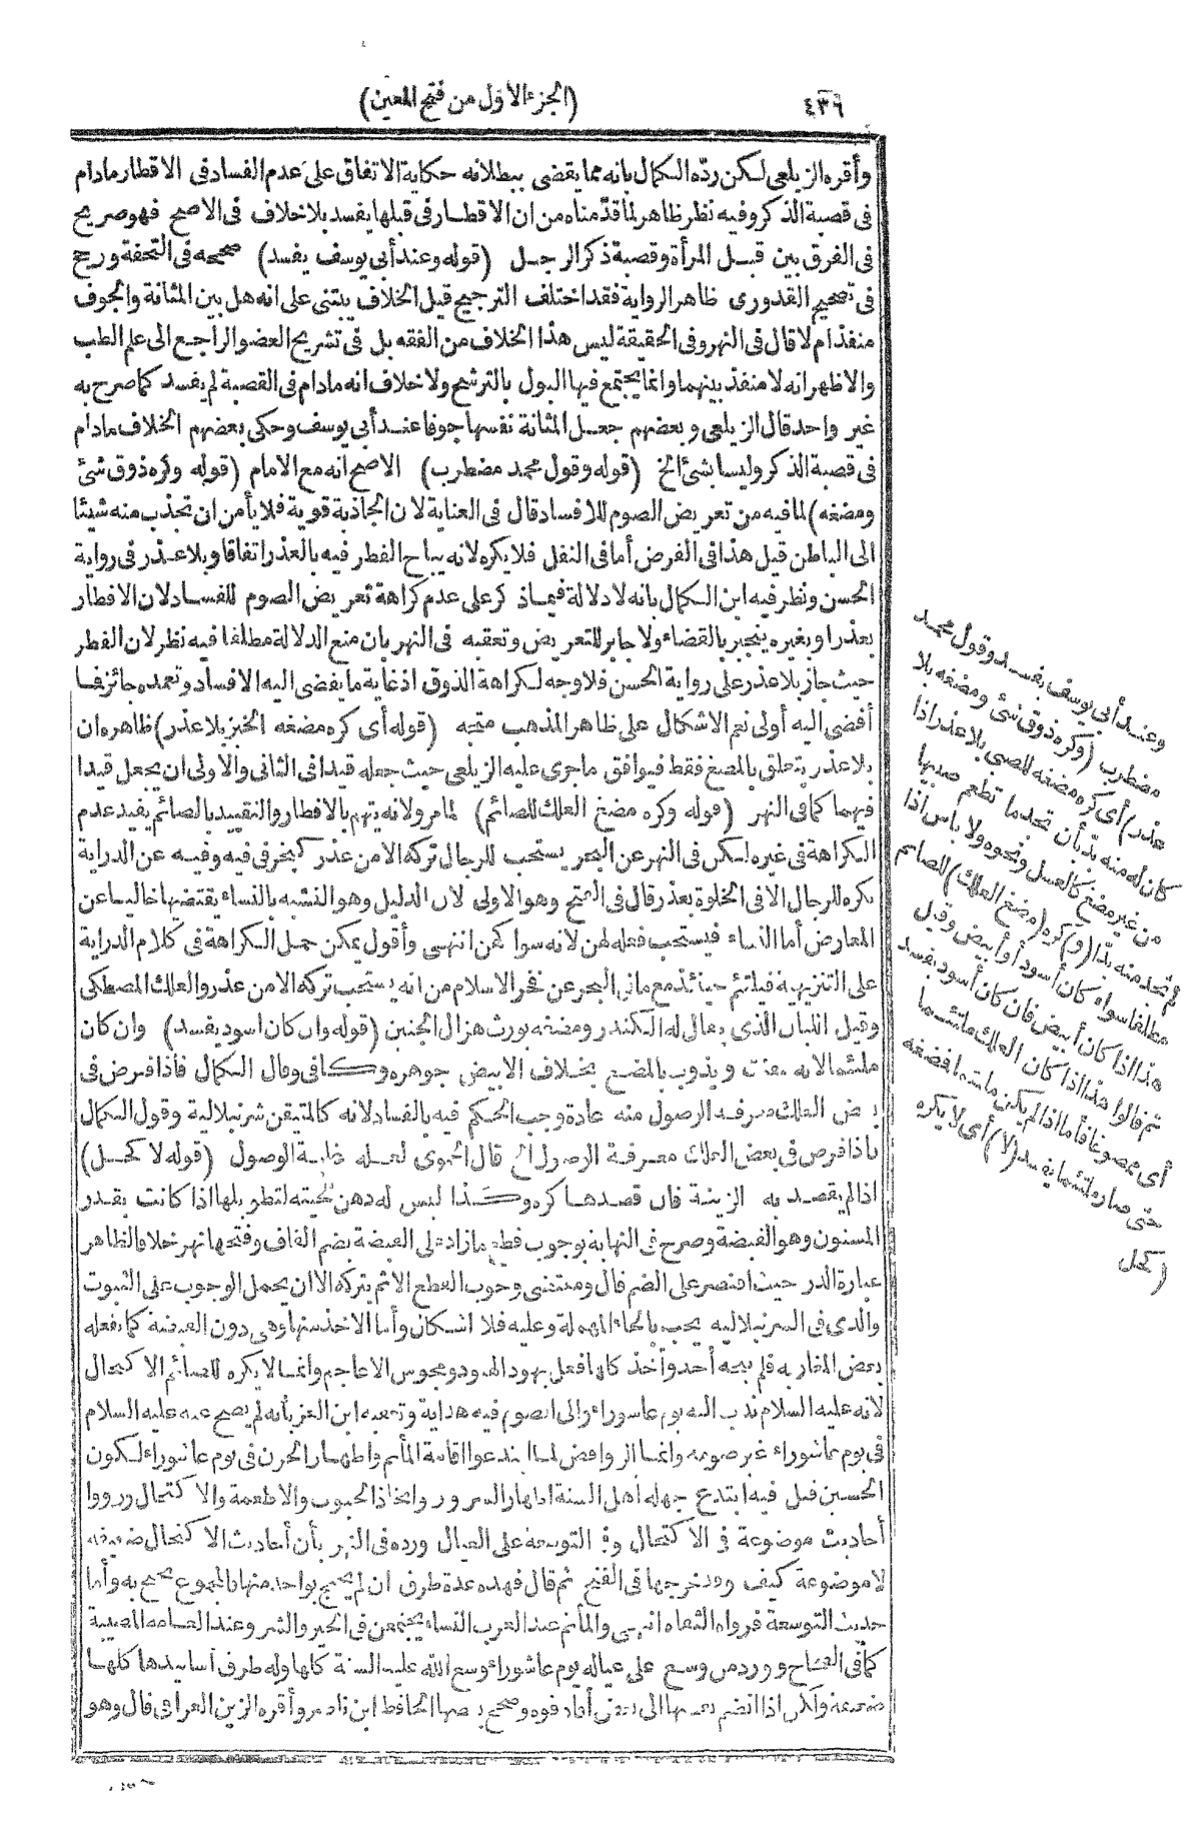 ٤٣٦
(الجزء الاوّل من فتح المعين)
وأقره الزيلعى لكن ردّه الكمال بانه مما يقضى ببطلانه حكاية الاتفاق على عدم الفساد فى الاقطار مادام
فى قصبة الذكر وفيه نظر ظاهر لما قدّمناه من ان الاقطار فى قبلها يفسد بلا خلاف فى الاصح فهو صريح
فى الفرق بين قبل المرأة وقصبة ذكر الرجل (قوله وعند أبى يوسف يفسد) صححه فى التحفة ورجح
فى تصحيح القدورى ظاهر الرواية فقد اختلف الترجيح قيل الخلاف يبتنى على انه هل بين المثانة والجوف
منفذ ام لا قال فى النهر وفى الحقيقة ليس هذا الخلاف من الفقه بل فى تشريح العضو الراجع الى علم الطب
والاظهر انه لا منفذ بينهما وانما يجتمع فيها البول بالترشح ولا خلاف انه مادام فى القصبة لم يفسد كما صرح به
غير واحد قال الزيلعى وبعضهم جعل المثانة نفسها جوفا عند أبى يوسف وحكى بعضهم الخلاف مادام
فى قصبة الذكر وليسا بشئ الخ (قوله وقول محمد مضطرب) الاصح انه مع الامام (قوله وكره ذوق شئ
ومضغه) لما فيه من تعريض الصوم للافساد قال فى العناية لان الجاذبة قوية فلا يأمن ان تجذب منه شيئا
الى الباطن قيل هذا فى الفرض أما فى النفل فلا يكره لانه يباح الفطر فيه بالعذر اتفاقا وبلا عذر فى رواية
الحسن ونظر فيه ابن الكمال بانه لا دلالة فيما ذكر على عدم كراهة تعريض الصوم للفساد لان الافطار
بعذر أو بغيره ينجبر بالقضاء ولا جابر للتعريض وتعقبه فى النهر بان منع الدلالة مطلقا فيه نظر لان الفطر
حيث جاز بلا عذر على رواية الحسن فلا وجه لكراهة الذوق اذ غاية ما يفضى اليه الافساد وتعمده جائز فما
أفضى اليه أولى نعم الاشكال على ظاهر المذهب متجه (قوله أى كره مضغه الخبز بلا عذر) ظاهره ان
بلا عذر يتعلق بالمضغ فقط فيوافق ما جرى عليه الزيلعى حيث جعله قيدا فى الثانى والاولى ان يجعل قيدا
فيهما كما فى النهر (قوله وكره مضغ العلك للصائم) لما مر ولانه يتهم بالافطار والتقييد بالصائم يفيد عدم
الكراهة فى غيره لكن فى النهر عن البحر يستحب للرجال تركه الا من عذر كبخر فى فيه وفيه عن الدراية
يكره للرجال الا فى الخلوة بعذر قال فى الفتح وهو الاولى لان الدليل وهو التشبه بالنساء يقتضيها خاليا عن
المعارض أما النساء فيستحب فعله لهن لانه سواكهن انتهى وأقول يمكن حمل الكراهة فى كلام الدراية
على التنزيهية فيلتئم حينئذ مع ما فى البحر عن فخر الاسلام من انه يستحب تركه الا من عذر والعلك المصطكى
وقيل اللبان الذى يقال له الكندر ومضغه يورث هزال الجنبين (قوله وان كان اسود يفسد) وان كان
ملتئما لانه يتفتت ويذوب بالمضغ بخلاف الابيض جوهره وكافى وقال الكمال فاذا فرض فى
بعض العلك معرفة الوصول منه عادة وجب الحكم فيه بالفساد لانه كالمتيقن شرنبلالية وقول الكمال
فاذا فرض فى بعض العلك معرفة الوصول الخ قال الحموى لعله غلبة الوصول (قوله لا كحل)
اذا لم يقصد به الزينة فان قصدها كره وكذا ليس له دهن لحيته لتطويلها اذا كانت بقدر
المسنون وهو القبضة وصرح فى النهاية بوجوب قطع ما زاد على القبضة بضم القاف وفتحها نهر خلافا لظاهر
عبارة الدر حيث اقتصر على الضم قال ومقتضى وجوب القطع الاثم بتركه الا ان يحمل الوجوب على الثبوت
والذى فى الشرنبلالية يحب بالحاء المهملة وعليه فلا اشكال وأما الاخذ منها وهى دون القبضة كما يفعله
بعض المغاربة فلم يبحه أحد وأخذ كلها فعل يهود الهنود ومجوس الاعاجم وانما لا يكره للصائم الاكتحال
لانه عليه السلام ندب اليه يوم عاشوراء والى الصوم فيه هداية وتعقبه ابن العز بأنه لم يصح عنه عليه السلام
فى يوم عاشوراء غير صومه وانما الروافض لما ابتدعوا اقامة المأتم واظهار الحزن فى يوم عاشوراء لكون
الحسين قتل فيه ابتدع جهلة أهل السنة اظهار السرور واتخاذ الحبوب والاطعمة والاكتحال ورووا
أحاديث موضوعة فى الاكتحال وفى التوسعة على العيال ورده فى النهر بأن أحاديث الاكتحال ضعيفة
لا موضوعة كيف وقد خرجها فى الفتح ثم قال فهذه عدة طرق ان لم يحتج بواحد منها فالمجموع يحتج به وأما
حديث التوسعة فرواه الثقاة انتهى والمأتم عند العرب النساء يجتمعن فى الخير والشر وعند العامة المصيبة
كما فى الصحاح وورد من وسع على عياله يوم عاشوراء وسع الله عليه السنة كلها وله طرق أسانيدها كلها
ضعيفة ولكن اذا انضم بعضها الى بعض أفاد قوة وصحح بعضها الحافظ ابن ناصر وأقره الزين العراقى قال وهو
وعند أبى يوسف يفسد وقول محمد
مضطرب (وكره ذوق شئ ومضغه بلا
عذر) أى كره مضغه للصبى بلا عذر اذا
كان له منه بد بأن تجد ما تطعم صبيها
من غير مضغ كالعسل ونحوه ولا بأس اذا
لم تجد منه بدا (و) كره (مضغ العلك) للصائم
مطلقا سواء كان أسود أو أبيض وقيل
هذا اذا كان أبيض فان كان أسود يفسد
ثم قالوا هذا اذا كان العلك ملتئما
أى ممضوغا فأما اذا لم يكن ملتئما فمضغه
حتى صار ملتئما يفسد (لا) أى لا يكره
(كحل